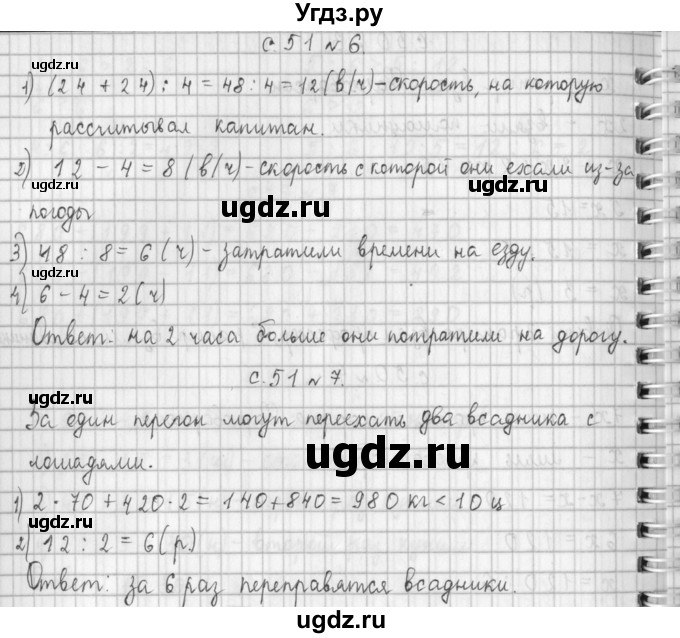 Угдз.ру
с. 51 № 6.
ugdz.ru
1) (24 + 24) : 4 = 48 : 4 = 12 (в/ч) – скорость, на которую
рассчитывал капитан.
ugdz.ru
2) 12 – 4 = 8 (в/ч) – скорость с которой они ехали из-за
погоды
ugdz.ru
3) 48 : 8 = 6 (ч) – затратили времени на езду.
ugdz.ru
4) 6 – 4 = 2 (ч)
Ответ: на 2 часа больше они потратили на дорогу.
с. 51 № 7.
ugdz.ru
За один перегон могут переехать два всадника с
лошадями.
ugdz.ru
1) 2 · 70 + 420 · 2 = 140 + 840 = 980 кг < 10 ц
ugdz.ru
2) 12 : 2 = 6 (р)
Ответ: за 6 раз переправятся всадники.
ugdz.ru
ugdz.ru